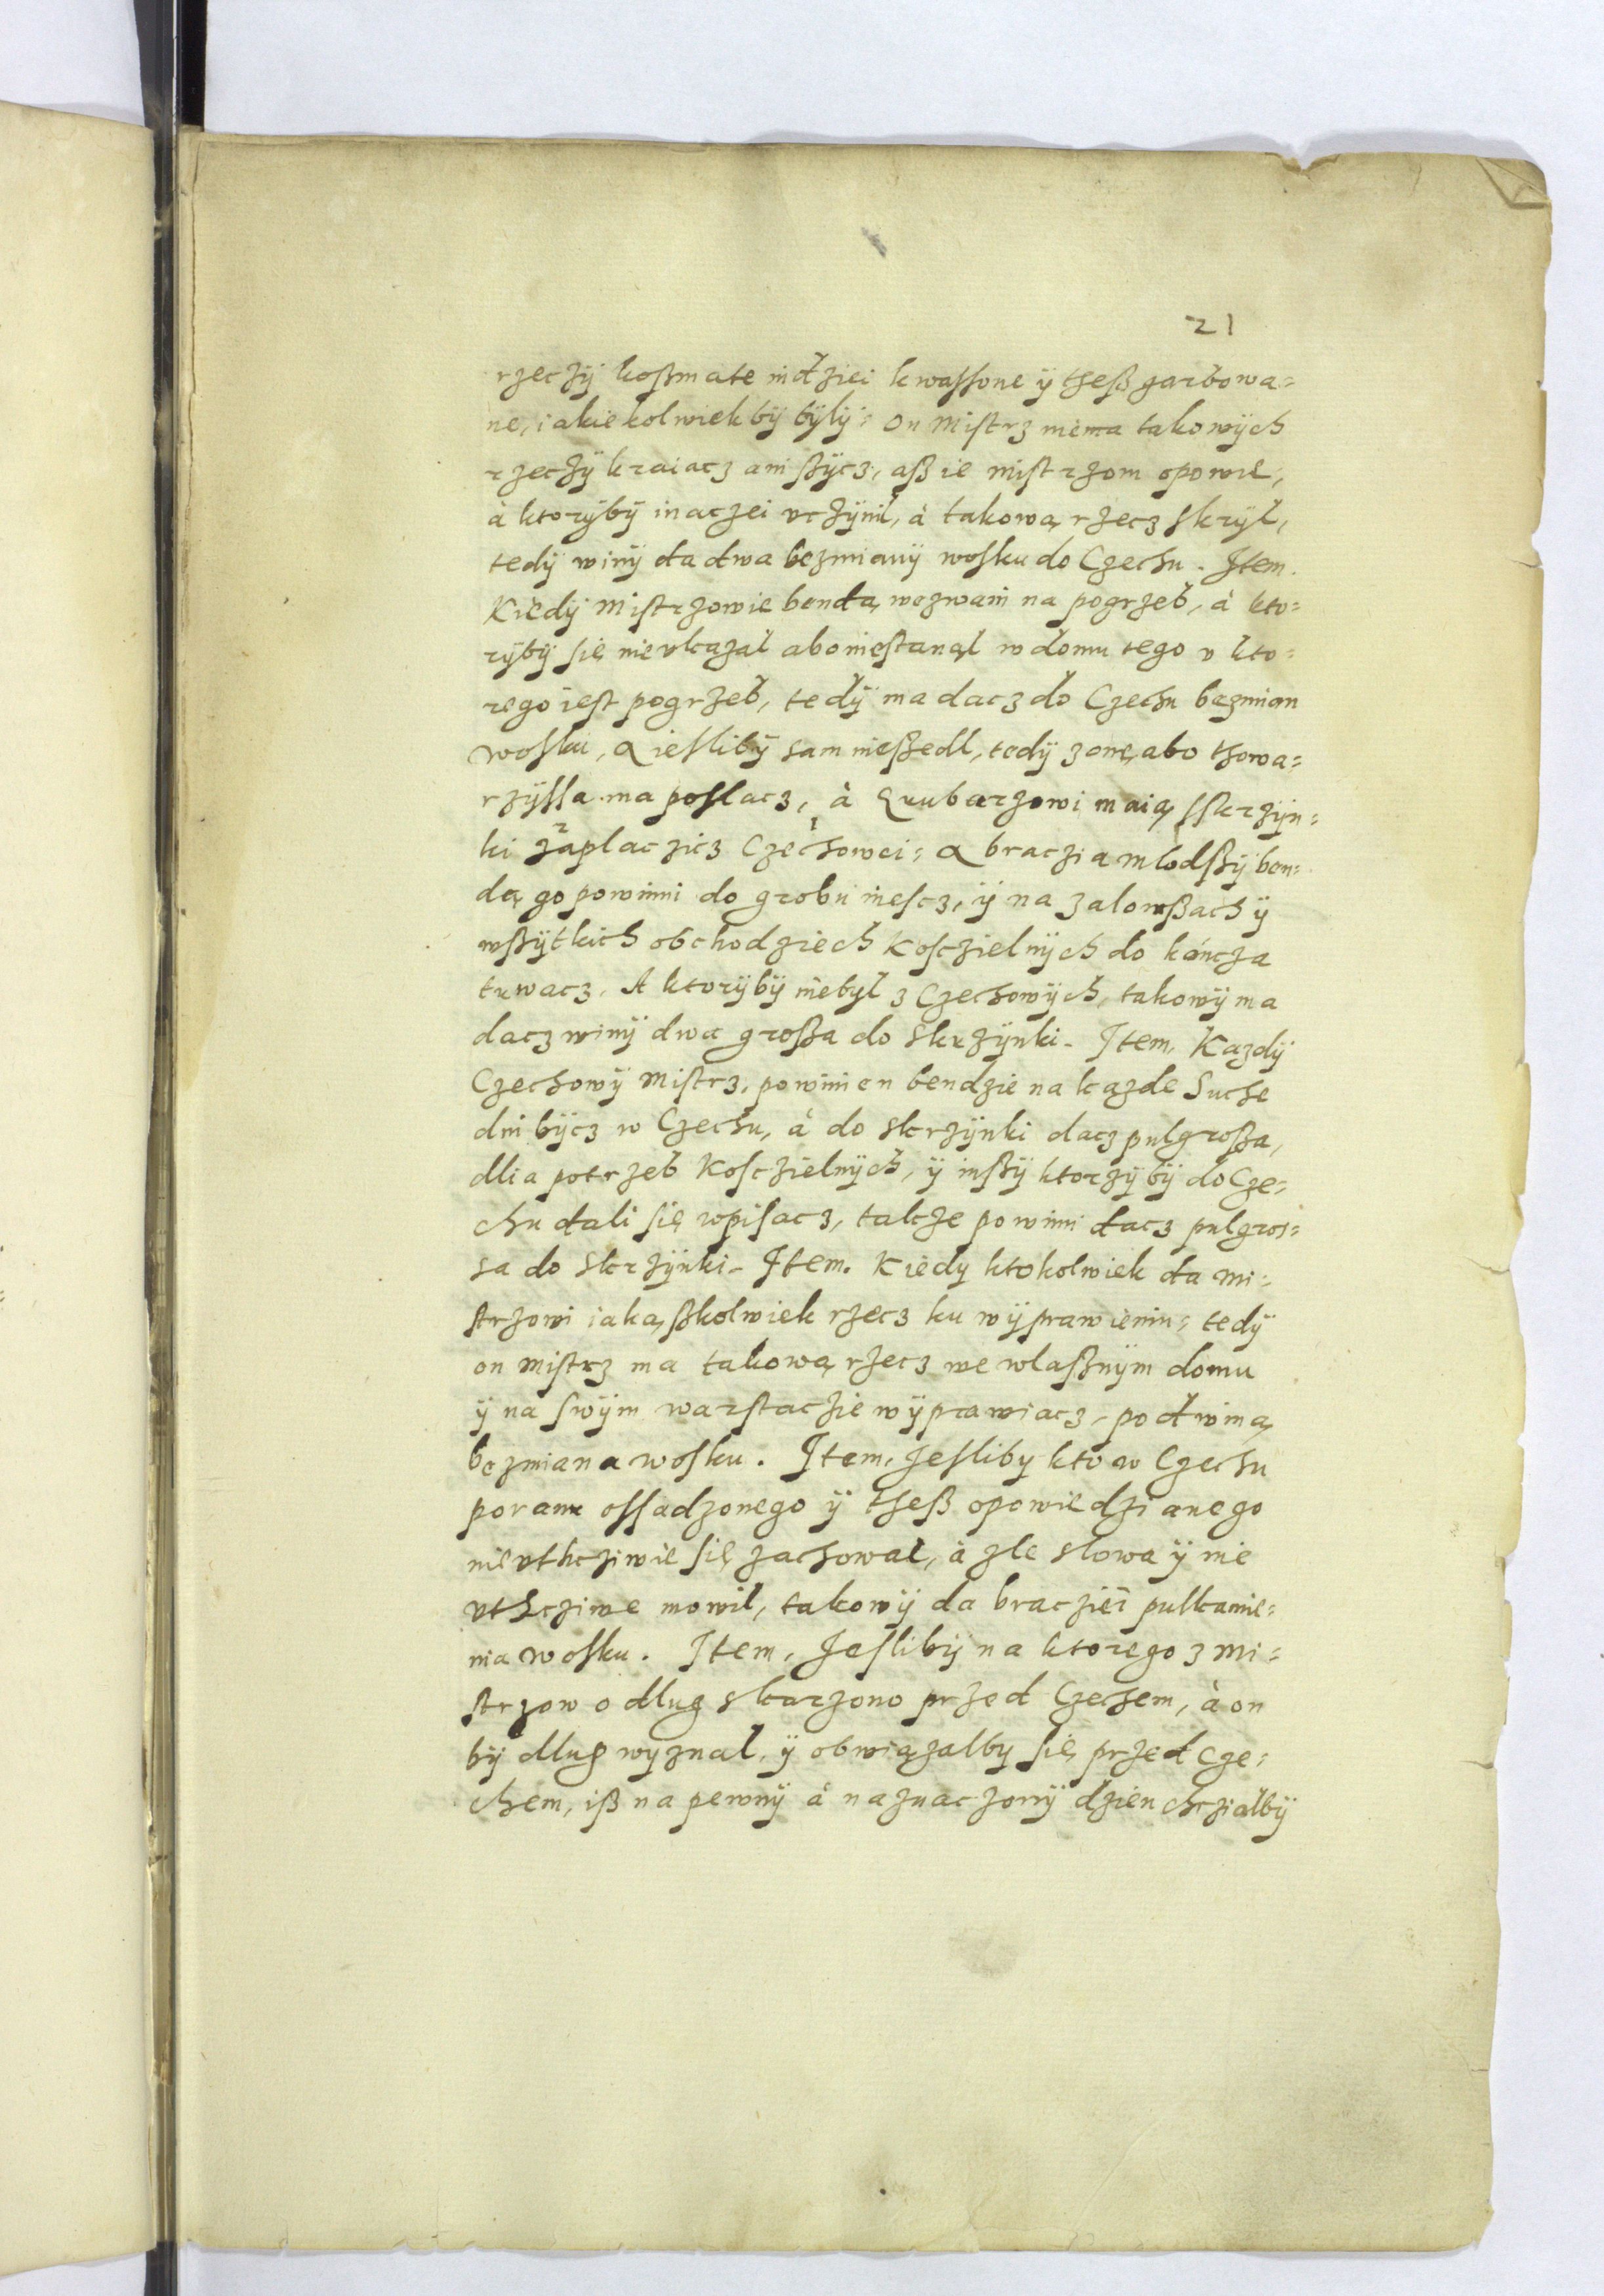 21
rzeczÿ koßmate indziei kwassone ÿ theß garbowa=
ne, iakiekolwiek bÿ bÿlÿ: on Mistrz niema takowÿch
rzeczÿ kraiacz ani ßÿcz, aß ie mistrzom opowie,
à ktorÿbÿ inaczei vczÿnil, à takową rzecz skrÿl,
tedÿ winÿ da dwa bezmianÿ wosku do Czechu. Item.
Kiedÿ Mistrzowie bendą wezwani na pogrzeb, à kto=
rÿbÿ się nievkazal abo niestanąl w domu tego v kto=
rego iest pogrzeb, tedÿ ma dacz do Czechu bezmian
wosku, A iesliby sam nießedl, tedÿ zonę abo thowa=
rzÿssa ma poslacz, à Grubarzowi maią sskrzÿn=
ki zaplaczicz Czechowei: A braczia mlodßÿ ben=
dą go powinni do grobu niescz, ÿ na zalomßach ÿ
wßÿtkich obchodziech Kosczielnÿch do kończa
truwacz. A ktorÿbÿ niebÿl z Czechowÿch, takowÿ ma
dacz winÿ dwa großa do skrzÿnki. Item, Kazdÿ
Czechowÿ Mistrz, powinien bendzie na kazde Suche
dni bÿcz w Czechu, à do skrzÿnki dacz pulgroßa,
dlia potrzeb Kosczielnÿch, ÿ inßÿ ktorzÿ bÿ do Cze=
chu dali się wpisacz, takze powinni dacz pulgros=
sa do skrzÿnki. Item. Kiedy ktokolwiek da Mi=
strzowi iakąßkolwiek rzecz ku wÿprawieniu: tedÿ
on mistrz ma takową rzecz we wlaßnÿm domu
ÿ na swÿm warstaczie wÿprawiacz, pod winą
bezmiana wosku. Item, Jesliby kto w Czechu
porani ossadzonego ÿ theß opowiedzianego
nievthcziwie się zachowal, à zle slowa ÿ nie
vthcziwe mowil, takowÿ da braczieÿ pulkamie=
nia wosku. Item, Jeslibÿ na ktorego z Mi=
strzow o dlug skarzono przed Czechem, à on
bÿ dlug wyznal, ÿ obwiązalby się przed Cze=
chem, iß na pewnÿ à naznaczonÿ dzien chczialbÿ